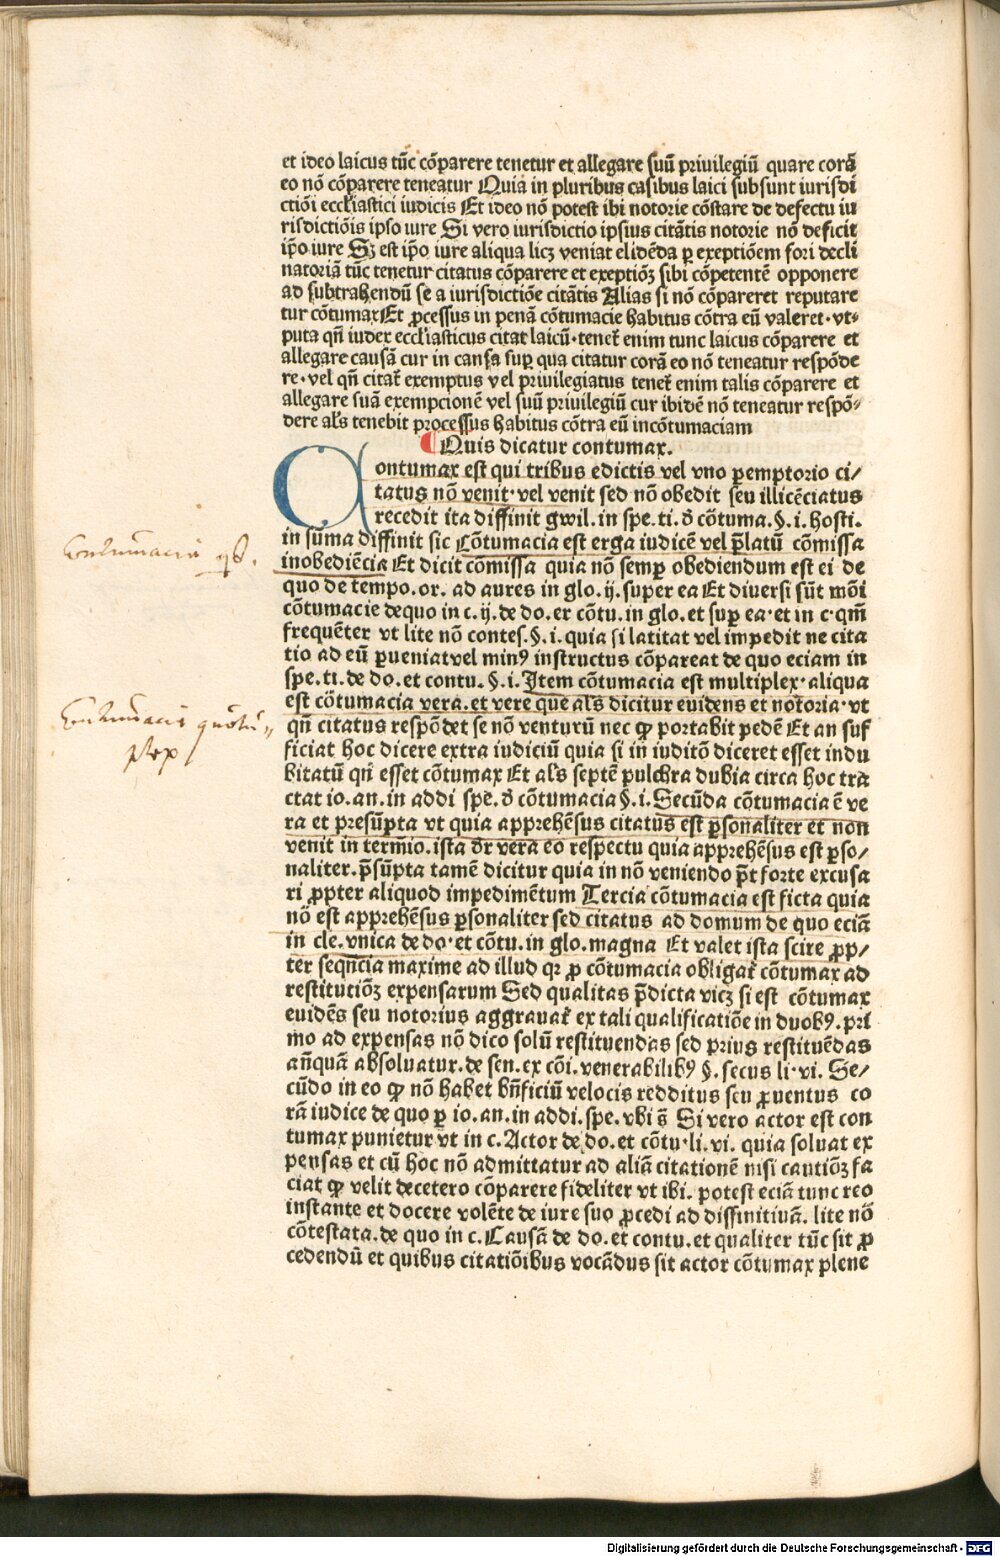 et ideo laicus tūc cōparere tenetur et allegare suū priuilegiū quare corā
eo nō cōparere teneatur Quia in pluribus casibus laici subsunt iurisdi
ctiōi eccłiastici iudicis Et ideo nō potest ibi notorie cōstare de defectu iu
risdictiōis ipso iure Si vero iurisdictio ipsius citātis notorie nō deficit
ip̄o iure Sꝫ est ip̄o iure aliqua licꝫ veniat elidēda ꝑ exeptiōem fori decli
natoriā tūc tenetur citatus cōparere et exeptiōꝫ sibi cōpetentē opponere
ad subtrahendū se a iurisdictiōe citātis Alias si nō cōpareret reputare
tur cōtumax Et ꝓcessus in penā cōtumacie habitus cōtra eū valeret· vt⸗
puta qn̄ iudex eccłiasticus citat laicū· tenet̄ enim tunc laicus cōparere et
allegare causā cur in causa suꝑ qua citatur corā eo nō teneatur respōde
re· vel qn̄ citat̄ exemptus vel priuilegiatus tenet̄ enim talis cōparere et
allegare suā exempcionē vel suū priuilegiū cur ibidē nō teneatur respō⸗
dere ał̄s tenebit processus habitus cōtra eū incōtumaciam
Quis dicatur contumax.
Contumax est qui tribus edictis vel vno ꝑemptorio ci/
tatus nō venit· vel venit sed nō obedit seu illicēciatus
recedit ita diffinit gwil. in spe. ti. d̄ cōtuma. §. i. hosti.
in sūma diffinit sic Cōtumacia est erga iudicē vel p̄latū cōmissa
inobediēcia Et dicit cōmissa quia nō semꝑ obediendum est ei de
quo de tempo. or. ad aures in glo. ij. super ea Et diuersi sūt mōi
cōtumacie dequo in c. ij. de do. er cōtu. in glo. et suꝑ ea· et in c· qm̄
frequēter vt lite nō contes. §. i. quia si latitat vel impedit ne cita
tio ad eū ꝑueniatvel minꝰ instructus cōpareat de quo eciam in
spe. ti. de do. et contu. §. i. Item cōtumacia est multiplex· aliqua
est cōtumacia vera. et vere que ał̄s dicitur euidens et notoria· vt
qn̄ citatus respōdet se nō venturū nec ꝙ portabit pedē Et an suf
ficiat hoc dicere extra iudiciū quia si in iuditō diceret esset indu
bitatū qn̄ esset cōtumax Et ał̄s septē pulchra dubia circa hoc tra
ctat io. an. in addi spe. d̄ cōtumacia §. i. Secūda cōtumacia ē ve
ra et presūpta vt quia apprehēsus citatus est ꝑsonaliter et non
venit in term̄io. ista dr̄ vera eo respectu quia apprehēsus est ꝑso/
naliter. p̄sūpta tamē dicitur quia in nō veniendo p̄t forte excusa
ri ꝓpter aliquod impedimētum Tercia cōtumacia est ficta quia
nō est apprehēsus ꝑsonaliter sed citatus ad domum de quo eciā
in cle. vnica de do· et cōtu. in glo. magna Et valet ista scire ꝓp/
ter seqn̄cia maxime ad illud qꝛ ꝓ cōtumacia obligat̄ cōtumax ad
restitutiōꝫ expensarum Sed qualitas p̄dicta vicꝫ si est cōtumax
euidēs seu notorius aggrauat̄ ex tali qualificatiōe in duobꝰ. pri
mo ad expensas nō dico solū restituendas sed prius restituēdas
an̄quā absoluatur. de sen. ex cōi. venerabilibꝰ §. secus li· vi. Se/
cūdo in eo ꝙ nō habet bn̄ficiū velocis redditus seu ꝓuentus co
rā iudice de quo ꝑ io. an. in addi. spe. vbi s̄ Si vero actor est con
tumax punietur vt in c. Actor de do. et cōtu· li. vi. quia soluat ex
pensas et cū hoc nō admittatur ad aliā citationē nisi cautiōꝫ fa
ciat ꝙ velit decetero cōparere fideliter vt ibi. potest eciā tunc reo
instante et docere volēte de iure suo ꝓcedi ad diffinitiuā. lite nō
cōtestata. de quo in c. Causā de do. et contu. et qualiter tūc sit ꝓ
cedendū et quibus citatiōibus vocādus sit actor cōtumax plene
Contumacia
Contumacia
Digitalisierung gefördert durch die Deutsche Forschungsgemeinschaft - DFG